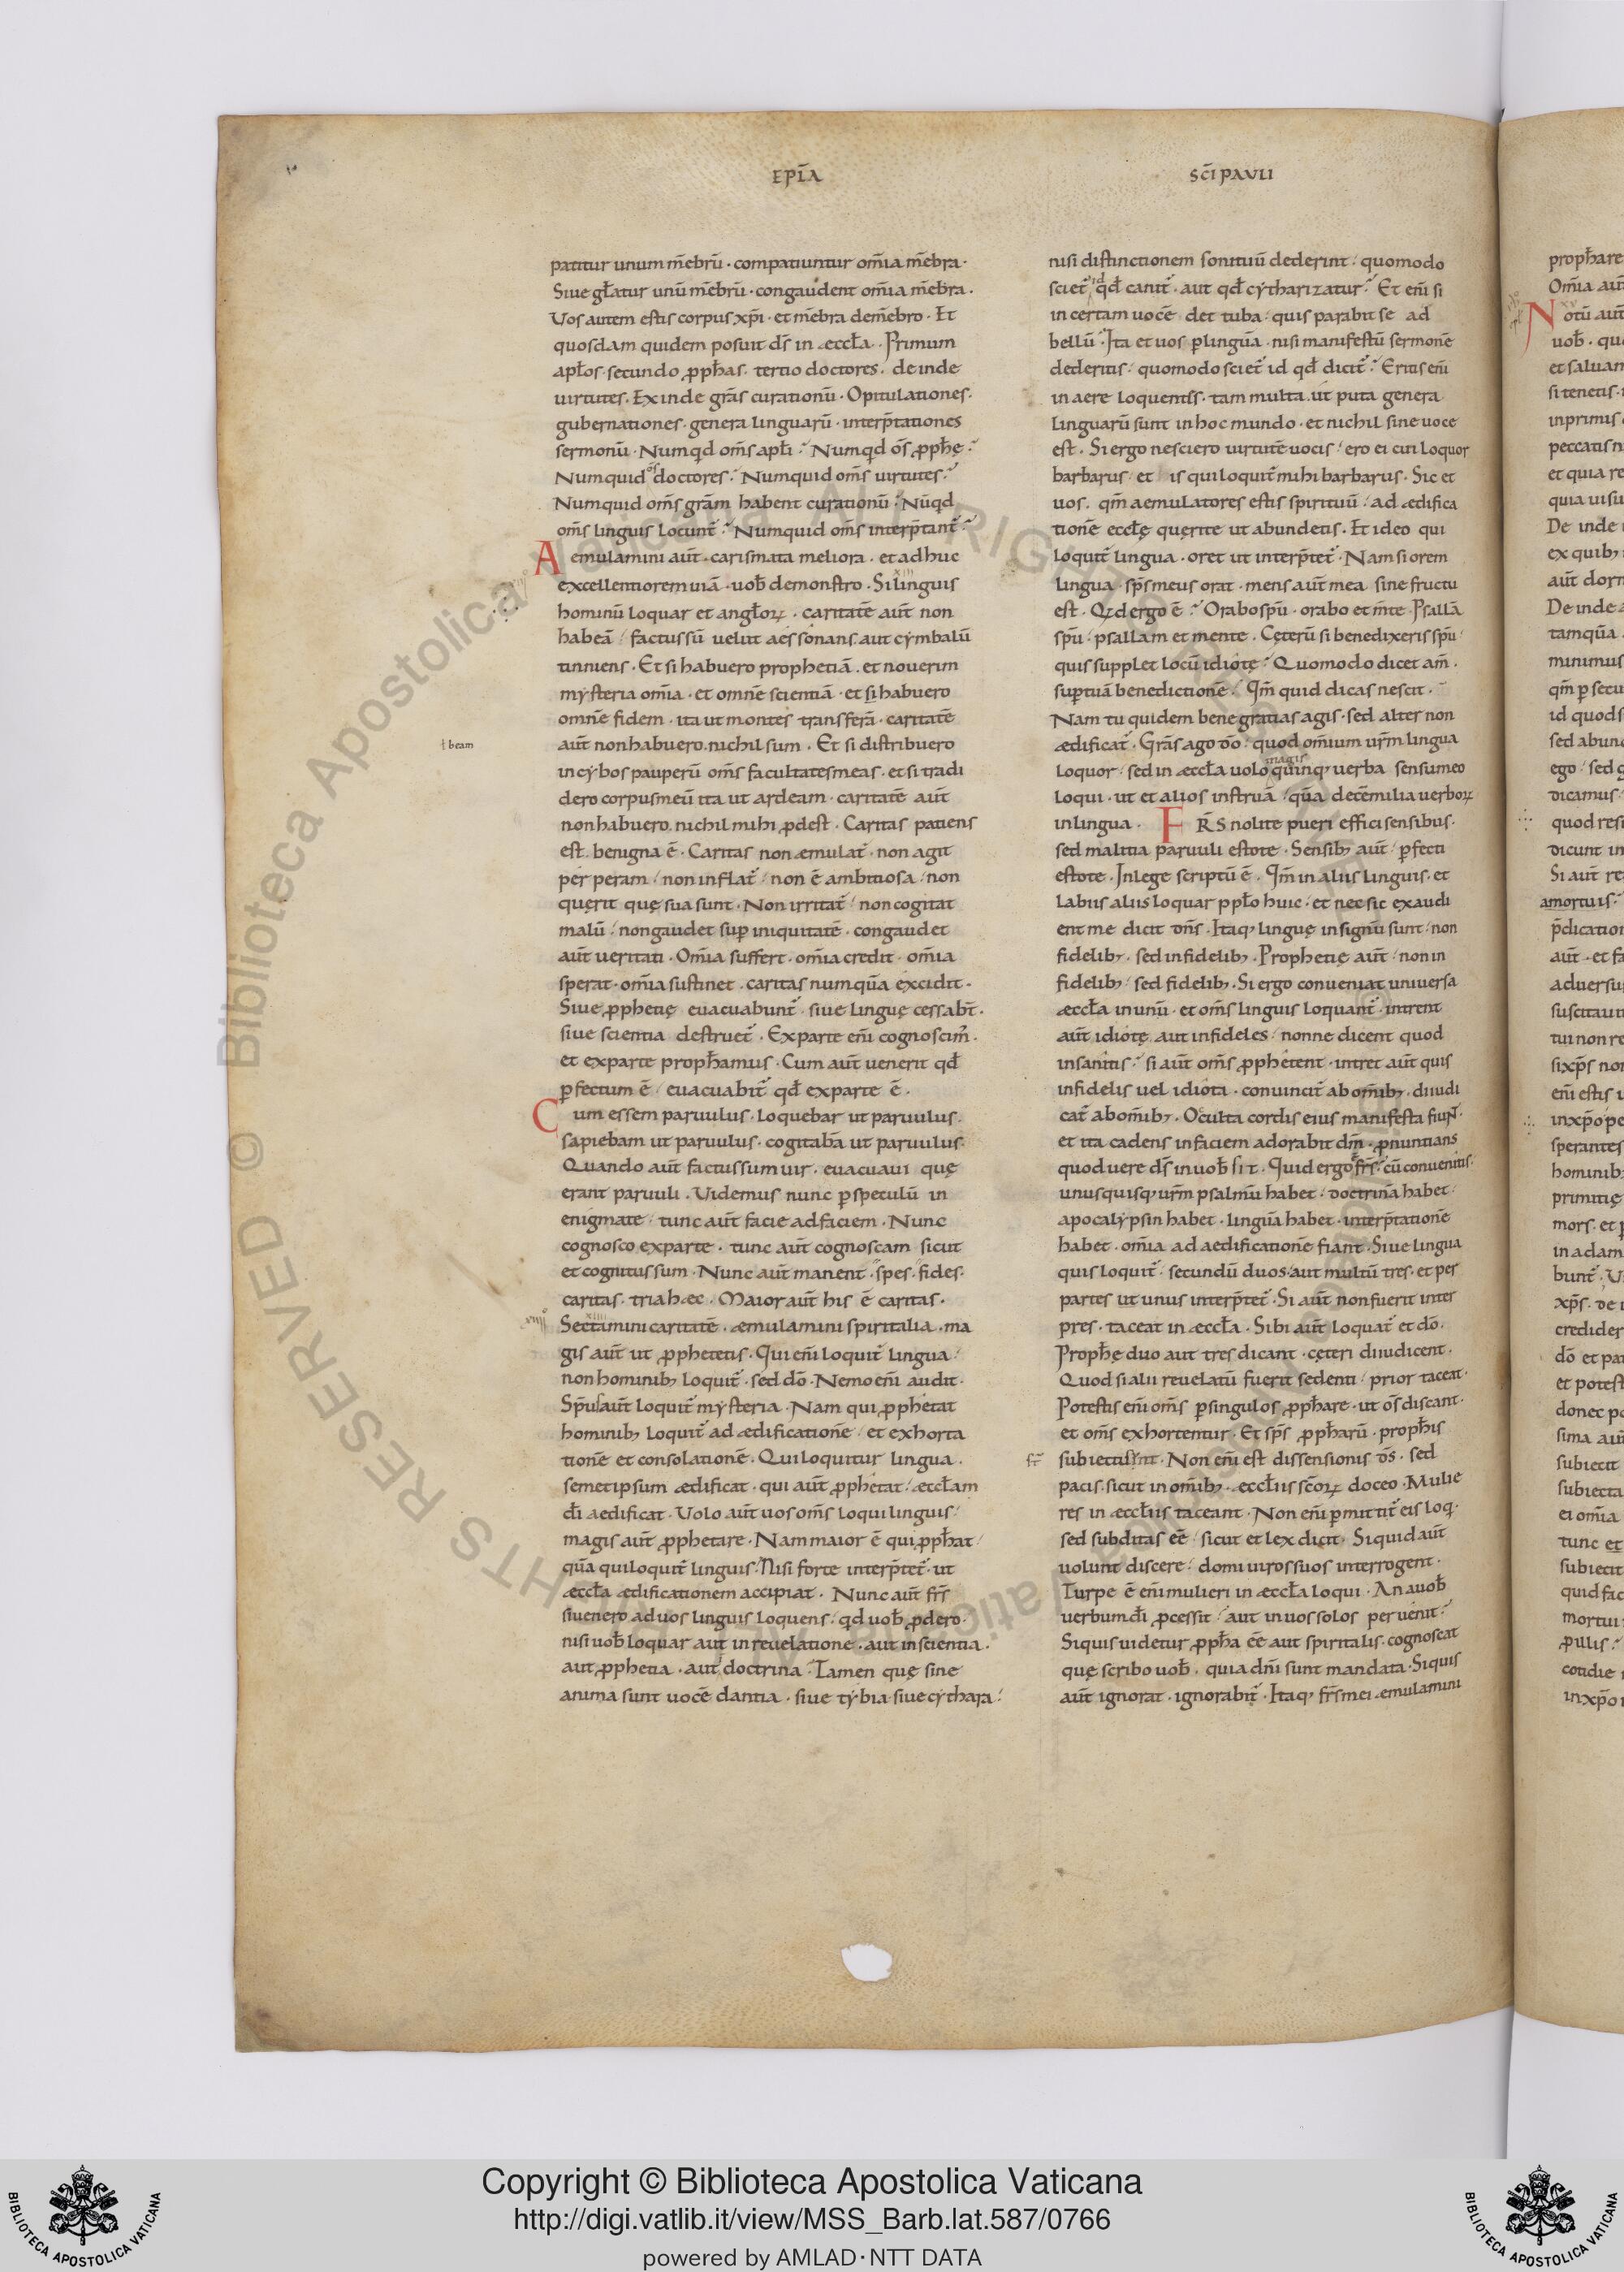 EPĪA
SC̄I PAVLI
patitur unum m̄ebrū · compatiuntur om̄ia m̄ebra ·
Siue gl̄atur unū m̄ebrū · congaudent om̄ia m̄ebra ·
Uos autem estis corpus xp̄i · et m̄ebra dem̄ebro · Et
quosdam quidem posuit ds̄ in æccl̄a · Primum
apl̄os · secundo ꝓph̄as · tertio doctores · deinde
uirtutes · Exinde grās curationū · Opitulationes ·
gubernationes · genera linguarū · interp̄tationes
sermonū · Numqd om̄s apl̄i ? Numqd ōs ꝓph̄ę ?
Numquid ōs doctores ? Numquid om̄s uirtutes ?
Numquid om̄s grām habent curationū ? Nūqd
om̄s linguis locunt̄ ? Numquid om̄s interp̄tant̄ ?
Aemulamini aūt · carismata meliora · et adhuc
excellentiorem uiā · uob̄ demonstro · Si linguis
hominū loquar et angl̄oꝝ · caritatē aūt non
habeā / factus sū uelut aes sonans aut cymbalū
tinniens · Et si habuero prophetiā · et nouerim
mysteria om̄ia · et omnē scientiā · et si habuero
omnē fidem · ita ut montes transferā · caritatē
ł beam
aūt non habuero · nichil sum · Et si distribuero
in cybos pauperū om̄s facultates meas · et si tradi
dero corpus meū ita ut ardeam · caritatē aūt
non habuero · nichil mihi ꝓdest · Caritas patiens
est · benigna ē · Caritas non æmulat̄ · non agit
per peram / non inflat̄ / non ē ambitiosa / non
querit quę sua sunt · Non irritat̄ / non cogitat
malū / non gaudet suꝑ iniquitatē · congaudet
aūt ueritati · Om̄ia suffert · om̄ia credit · om̄ia
sperat · om̄ia sustinet · caritas numquā excidit ·
Siue ꝓphetię euacuabunt̄ · siue linguę cessab̄t ·
siue scientia destruet̄ · Ex parte em̄ cognoscim̄ ·
et ex parte proph̄amus · Cum aūt uenerit qd̄
ꝑfectum ē / euacuabit̄ qd̄ ex parte ē ·
Cum essem paruulus · loquebar ut paruulus ·
sapiebam ut paruulus · cogitabā ut paruulus ·
Quando aūt factus sum uir · euacuaui quę
erant paruuli · Uidemus nunc ꝑ speculū in
enigmate / tunc aūt facie ad faciem · Nunc
cognosco ex parte · tunc aūt cognoscam sicut
et cognitus sum · Nunc aūt manent · spes · fides ·
caritas · tria hæc · Maior aūt his ē caritas ·
Sectamini caritatē · æmulamini spiritalia · ma
gis aūt ut ꝓphetetis · Qui em̄ loquit̄ lingua /
non hominibꝫ loquit̄ · sed dō · Nemo em̄ audit ·
Sp̄u aūt loquit̄ mysteria · Nam qui ꝓphetat
hominibꝫ loquit̄ ad ædificationē / et exhorta
tionē et consolationē · Qui loquitur lingua ·
semetipsum ædificat · qui aūt ꝓphetat / æccl̄am
dī aedificat · Uolo aūt uos om̄s loqui linguis /
magis aūt ꝓphetare · Nam maior ē qui ꝓph̄at /
quā qui loquit̄ linguis / Nisi forte interp̄tet̄ · ut
æccl̄a ædificationem accipiat · Nunc aūt fr̄s
si uenero ad uos linguis loquens / qd uob̄ ꝓdero ·
nisi uob̄ loquar aut in reuelatione · aut in scientia ·
aut ꝓphetia · aut doctrina / Tamen quę sine
anima sunt uocē dantia · siue tybia siue cythara /
nisi distinctionem sonituū dederint / quomodo
sciet̄ id qd̄ canit̄ · aut qd̄ cytharizatur ? Et em̄ si
in certam uocē det tuba / quis parabit se ad
bellū ? Ita et uos ꝑ linguā · nisi manifestū sermonē
dederitis / quomodo sciet̄ id qd̄ dicit̄ ? Eritis em̄
in aere loquentes · tam multa · ut puta genera
linguarū sunt in hoc mundo · et nichil sine uoce
est · Si ergo nesciero uirtutē uocis / ero ei cui loquor
barbarus / et is qui loquit̄ mihi barbarus · Sic et
uos · qm̄ aemulatores estis spirituū / ad ædifica
tionē eccl̄ę querite ut abundetis · Et ideo qui
loquit̄ lingua · oret ut interp̄tet̄ · Nam si orem
lingua · sp̄s meus orat · mens aūt mea sine fructu
est · Qd ergo ē ? Orabo sp̄u · orabo et m̄te · Psallā
sp̄u / psallam et mente · Ceterū si benedixeris sp̄u /
quis supplet locū idiotę ? Quomodo dicet am̄ ·
suꝑ tuā benedictionē ? Qm̄ quid dicas nescit ·
Nam tu quidem bene gratias agis · sed alter non
ædificat̄ · Grās ago dō / quod om̄ium urm̄ lingua
loquor / sed in æccl̄a uolo magis quinqꝫ uerba sensu meo
loqui · ut et alios instruā / quā decē milia uerboꝝ
in lingua · FRS̄ nolite pueri effici sensibus ·
sed malitia paruuli estote · Sensibꝫ aūt / ꝑfecti
estote · In lege scriptū ē · Qm̄ in aliis linguis · et
labiis aliis loquar ppl̄o huic / et nec sic exaudi
ent me dicit dn̄s · Itaqꝫ linguę in signū sunt / non
fidelibꝫ · sed infidelibꝫ · Prophetię aūt / non in
fidelibꝫ / sed fidelibꝫ · Si ergo conueniat uniuersa
æccl̄a in unū · et om̄s linguis loquant̄ · intrent
aūt idiotę aut infideles / nonne dicent quod
insanitis ? si aūt om̄s ꝓphetent · intret aūt quis
infidelis uel idiota · conuincit̄ ab om̄ibꝫ · diiudi
cat̄ ab om̄ibꝫ · Oculta cordis eius manifesta fiunt ·
et ita cadens in faciem adorabit dm̄ · ꝓnuntians
quod uere ds̄ in uob̄ sit · Quid ergo ē fr̄s ? cū conuenitis ·
unusquisqꝫ urm̄ psalmū habet · doctrinā habet ·
apocalypsin habet · linguā habet · interp̄tationē
habet · om̄ia ad aedificationē fiant · Siue lingua
quis loquit̄ · secundū duos · aut multū tres · et per
partes ut unus interp̄tet̄ · Si aūt non fuerit inter
pres · taceat in æccl̄a · Sibi aūt loquat̄ et dō ·
Proph̄ę duo aut tres dicant · cęteri diiudicent ·
Quod si alii reuelatū fuerit sedenti / prior taceat ·
Potestis em̄ om̄s ꝑ singulos ꝓph̄are · ut ōs discant ·
et om̄s exhortentur · Et sp̄s ꝓph̄arū · proph̄is
subiecti sunt · Non em̄ est dissensionis ds̄ · sed
pacis · sicut in om̄ibꝫ · æccl̄iis sc̄oꝝ doceo · Mulie
res in æccl̄iis taceant · Non em̄ ꝑmittit̄ eis loq̄ ·
sed subditas eē / sicut et lex dicit · Si quid aūt
uolunt discere / domi uiros suos interrogent ·
Turpe ē em̄ mulieri in æccl̄a loqui · An a uob̄
uerbum dī ꝓcessit / aut in uos solos peruenit ?
Si quis uidetur ꝓph̄a eē aut spiritalis · cognoscat
quę scribo uob̄ · quia dn̄i sunt mandata · Si quis
aūt ignorat · ignorabit̄ · Itaqꝫ fr̄s mei æmulamini
Copyright © Biblioteca Apostolica Vaticana
http://digi.vatlib.it/view/MSS_Barb.lat.587/0766
powered by AMLAD·NTT DATA